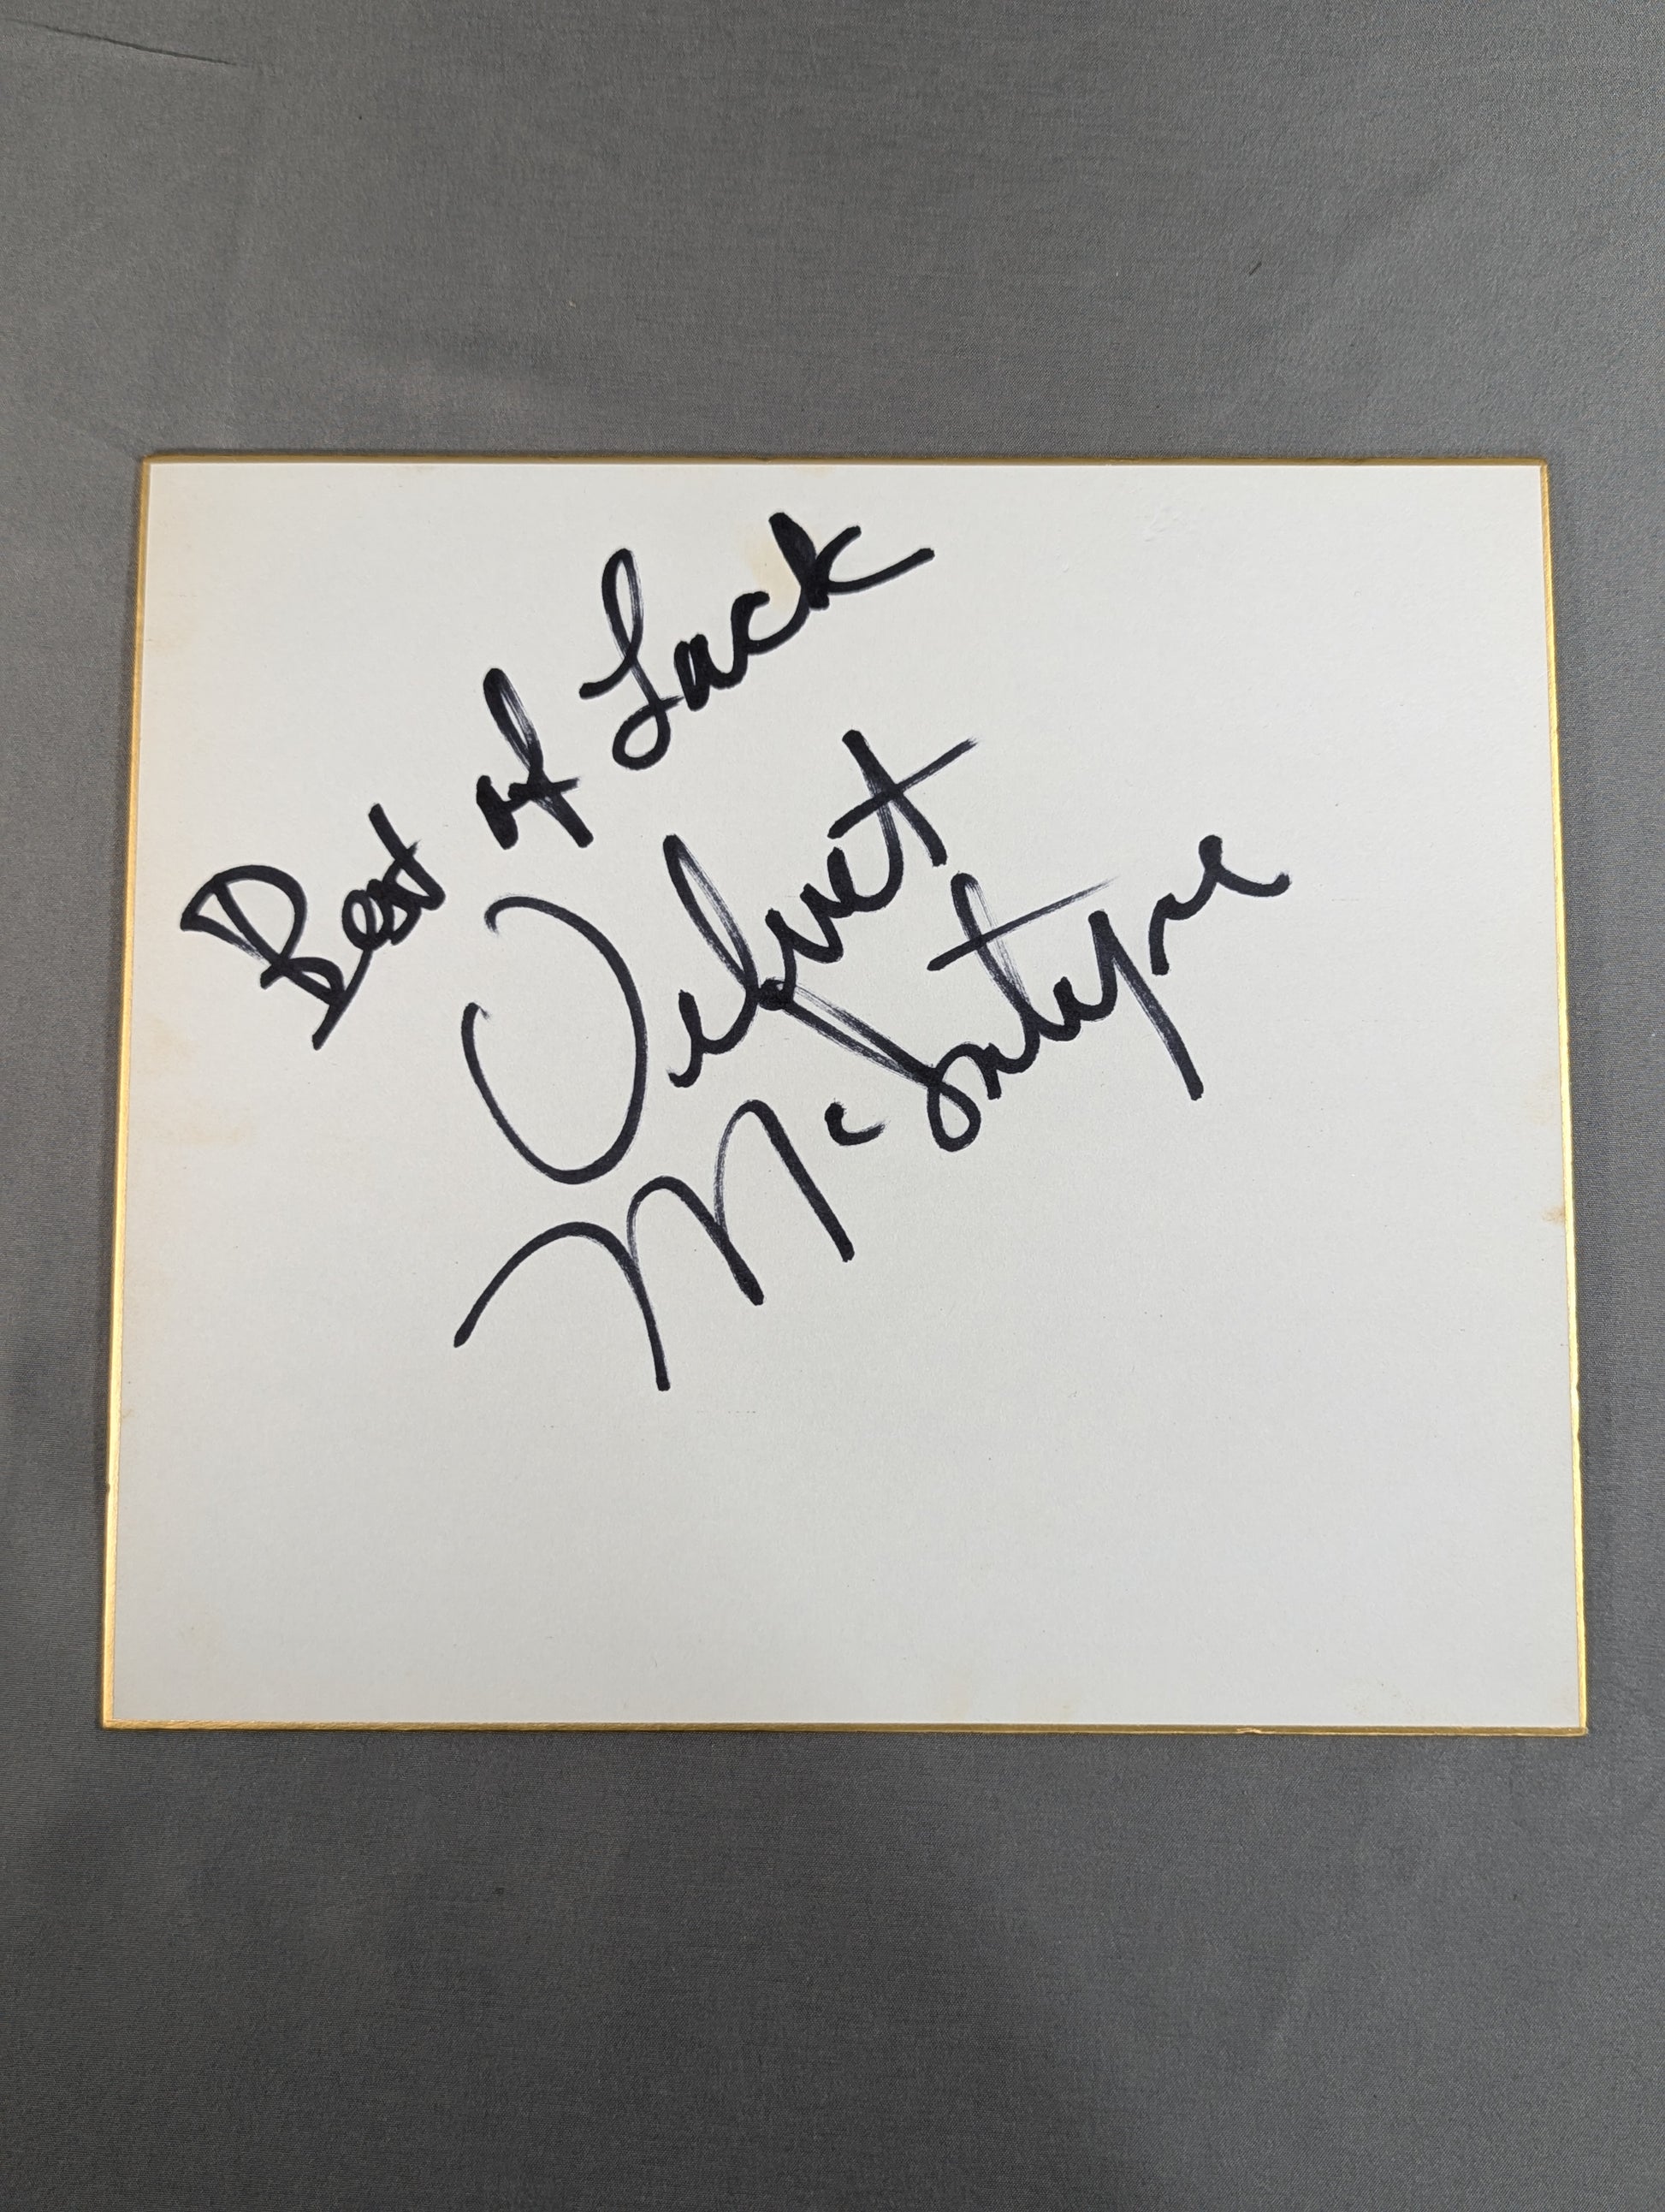 Best of Luck
Velvet
McIntyre